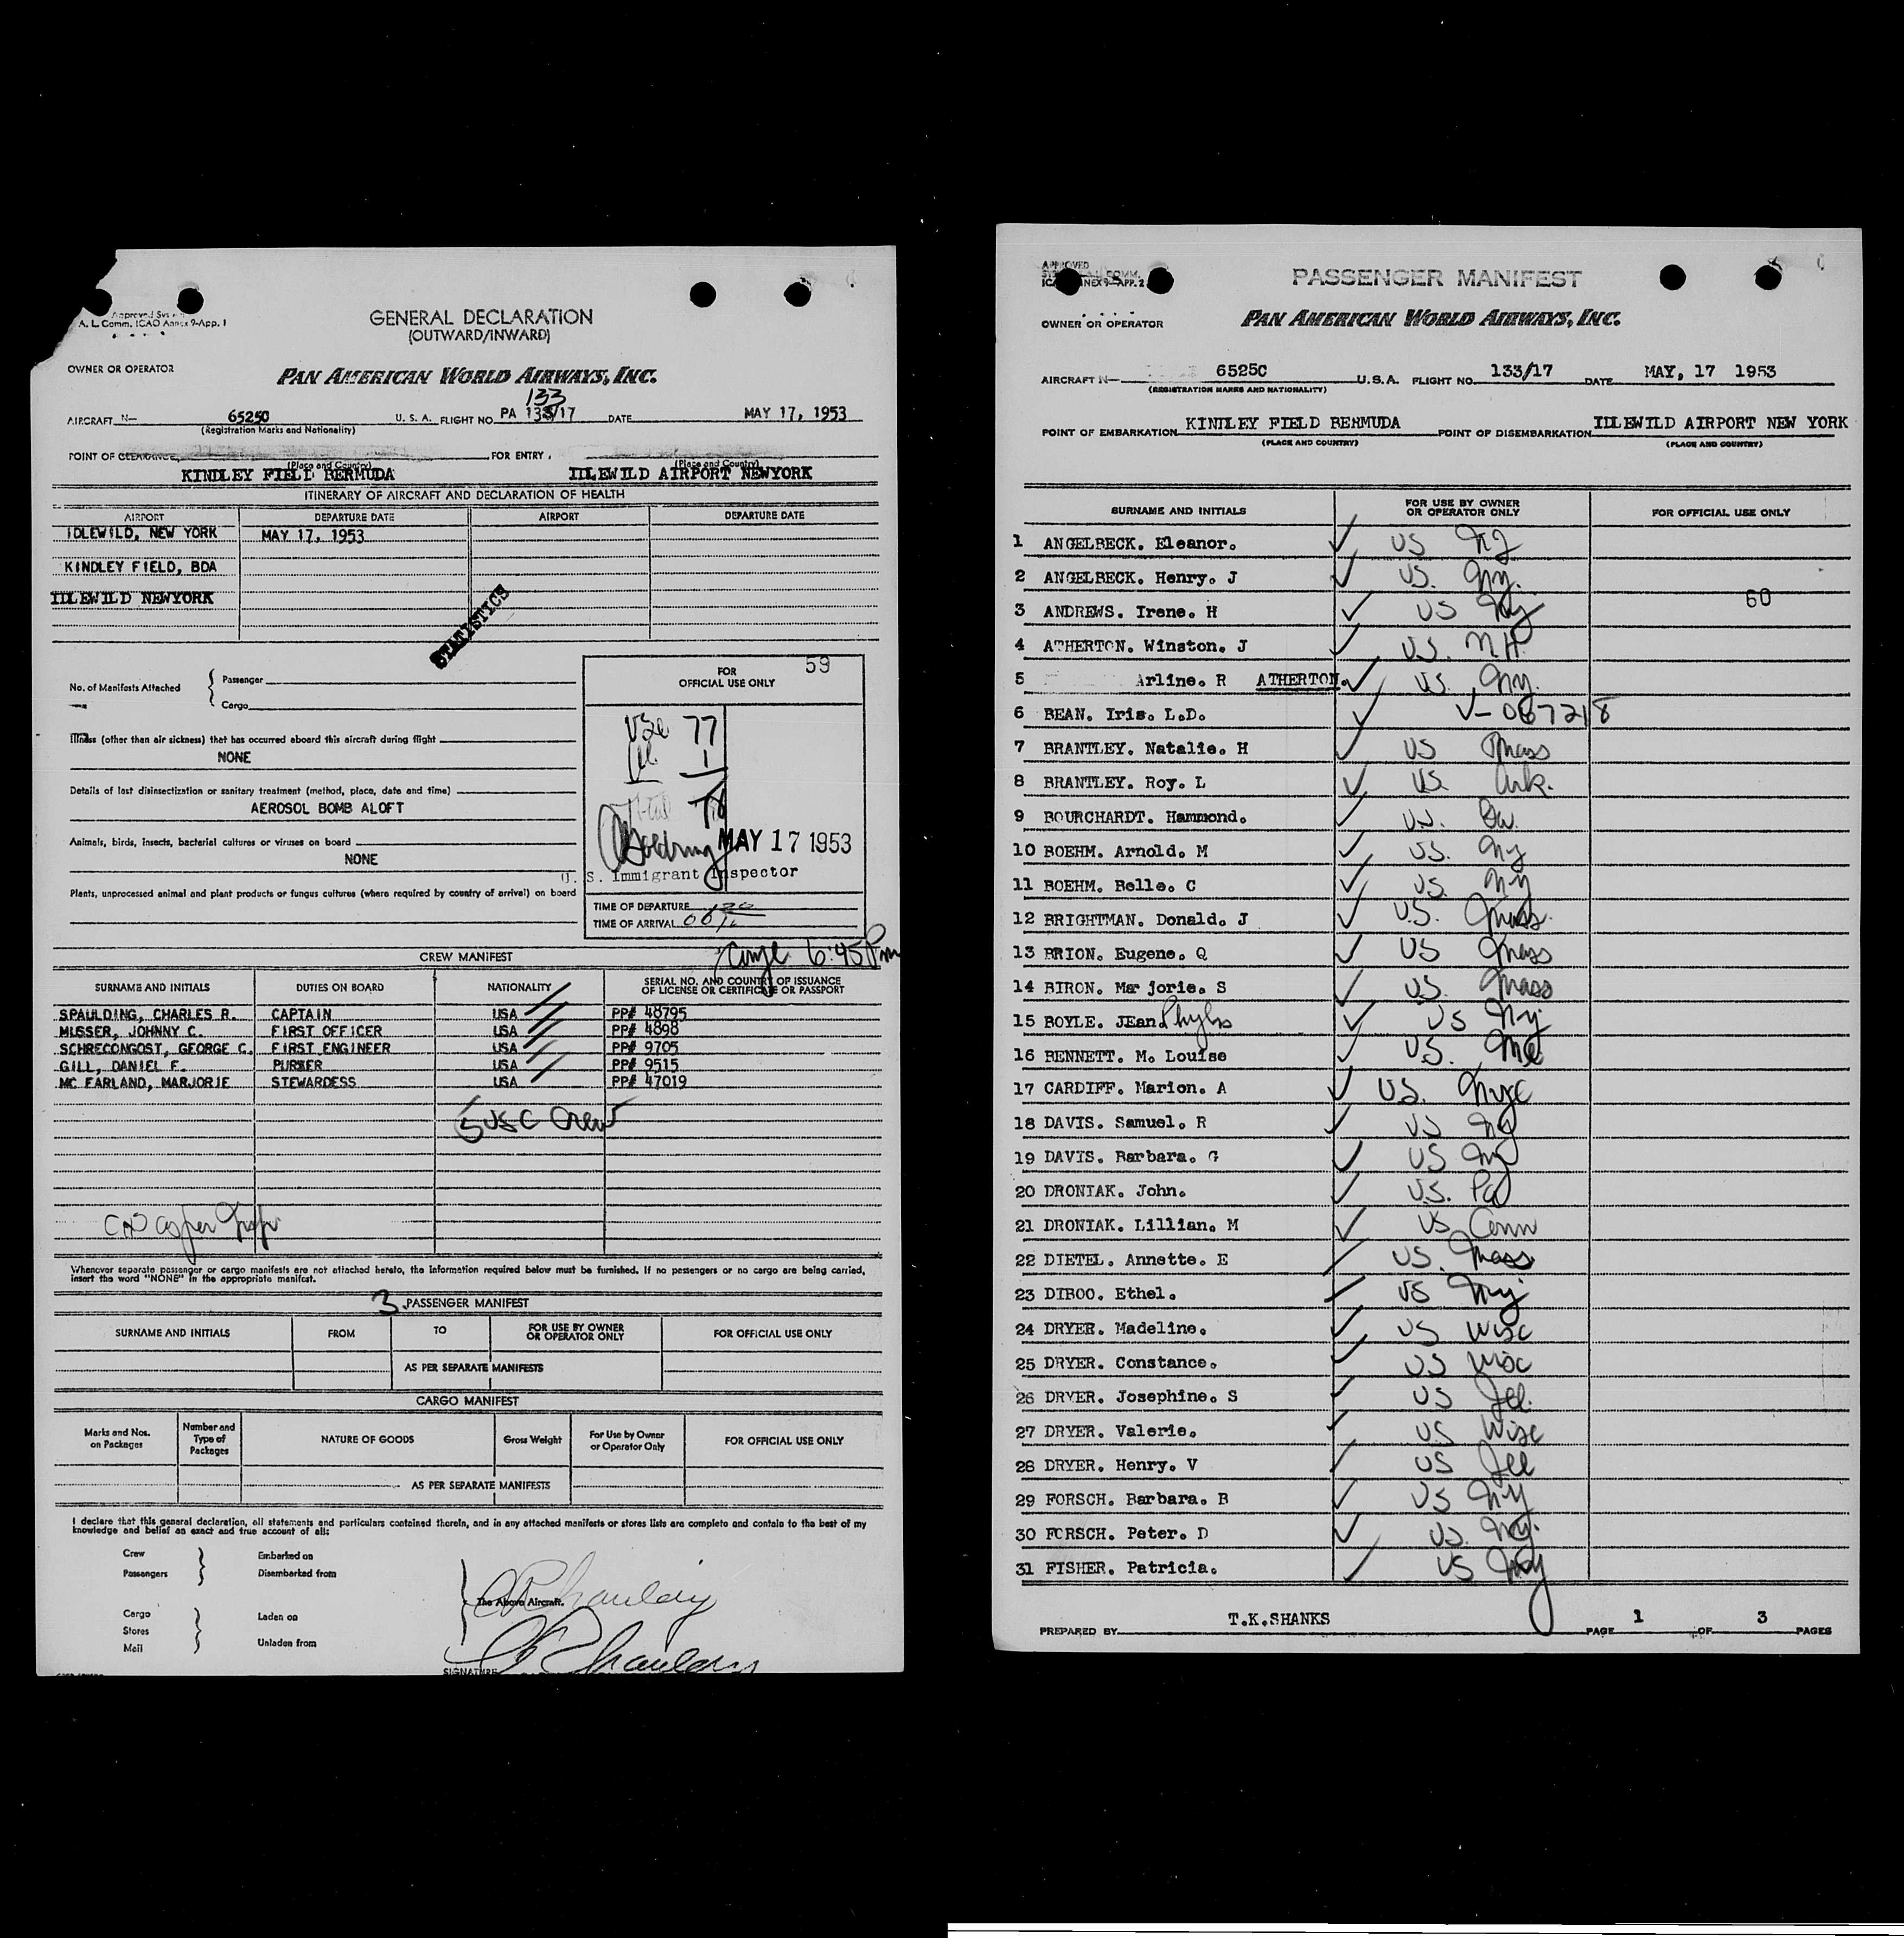 Approved Sys
A. L. Comm. ICAO Annex 9-App. 1
GENERAL DECLARATION
(OUTWARD/INWARD)
OWNER OR OPERATOR
PAN AMERICAN WORLD AIRWAYS, INC.
133
AIRCRAFT N— 6525C U. S. A. FLIGHT NO. PA 133/17 DATE MAY 17, 1953
(Registration Marks and Nationality)
POINT OF CLEARANCE FOR ENTRY
(Place and Country) (Place and Country)
KINDLEY FIELD BERMUDA IDLEWILD AIRPORT NEWYORK
ITINERARY OF AIRCRAFT AND DECLARATION OF HEALTH
AIRPORT DEPARTURE DATE AIRPORT DEPARTURE DATE
IDLEWILD, NEW YORK MAY 17, 1953
KINDLEY FIELD, BDA
IDLEWILD NEWYORK
STATISTICS
No. of Manifests Attached { Passenger
Cargo
FOR 59
OFFICIAL USE ONLY
USC 77
1
Total 78
Illness (other than air sickness) that has occurred aboard this aircraft during flight
NONE
Details of last disinsectization or sanitary treatment (method, place, date and time)
AEROSOL BOMB ALOFT
MAY 17 1953
Animals, birds, insects, bacterial cultures or viruses on board
NONE
U. S. Immigrant Inspector
Plants, unprocessed animal and plant products or fungus cultures (where required by country of arrival) on board
TIME OF DEPARTURE
TIME OF ARRIVAL
6:45 Pm
CREW MANIFEST
SURNAME AND INITIALS DUTIES ON BOARD NATIONALITY SERIAL NO. AND COUNTRY OF ISSUANCE OF LICENSE OR CERTIFICATE OR PASSPORT
SPAULDING, CHARLES R. CAPTAIN USA PP# 48795
MUSSER, JOHNNY C. FIRST OFFICER USA PP# 4898
SCHRECONGOST, GEORGE C. FIRST ENGINEER USA PP# 9705
GILL, DANIEL F. PURSER USA PP# 9515
MC FARLAND, MARJORIE STEWARDESS USA PP# 47019
5 USC Crew
Whenever separate passenger or cargo manifests are not attached hereto, the information required below must be furnished. If no passengers or no cargo are being carried,
insert the word "NONE" in the appropriate manifest.
3 PASSENGER MANIFEST
SURNAME AND INITIALS FROM TO FOR USE BY OWNER OR OPERATOR ONLY FOR OFFICIAL USE ONLY
AS PER SEPARATE MANIFESTS
CARGO MANIFEST
Marks and Nos. on Packages Number and Type of Packages NATURE OF GOODS Gross Weight For Use by Owner or Operator Only FOR OFFICIAL USE ONLY
AS PER SEPARATE MANIFESTS
I declare that this general declaration, all statements and particulars contained therein, and in any attached manifests or stores lists are complete and contain to the best of my
knowledge and belief an exact and true account of all:
Crew Embarked on
Passengers Disembarked from
The Above Aircraft.
Cargo
Stores Laden on
Mail Unladen from
SIGNATURE
APPROVED
COMM.
ICAO ANNEX 9-APP. 2
PASSENGER MANIFEST
OWNER OR OPERATOR PAN AMERICAN WORLD AIRWAYS, INC.
AIRCRAFT N— 6525C U.S.A. FLIGHT NO. 133/17 DATE MAY, 17 1953
(REGISTRATION MARKS AND NATIONALITY)
POINT OF EMBARKATION KINDLEY FIELD BERMUDA POINT OF DISEMBARKATION IDLEWILD AIRPORT NEW YORK
(PLACE AND COUNTRY) (PLACE AND COUNTRY)
SURNAME AND INITIALS FOR USE BY OWNER OR OPERATOR ONLY FOR OFFICIAL USE ONLY
1 ANGELBECK. Eleanor. US NJ
2 ANGELBECK. Henry. J US. Ny.
3 ANDREWS. Irene. H US Ny 60
4 ATHERTON. Winston. J US. N.H.
5 Arline. R ATHERTON. US Ny.
6 BEAN. Iris. L.D. V-067218
7 BRANTLEY. Natalie. H US Mass
8 BRANTLEY. Roy. L US Ark.
9 BOURCHARDT. Hammond. US.
10 BOEHM. Arnold. M US. Ny
11 BOEHM. Belle. C US. Ny
12 BRIGHTMAN. Donald. J U.S. Mass.
13 BRION. Eugene. Q US Mass
14 BIRON. Mar jorie. S US. Mass
15 BOYLE. JEan. Phyliss US Nj
16 BENNETT. M. Louise US. Me
17 CARDIFF. Marion. A US. Nyc
18 DAVIS. Samuel. R US NJ
19 DAVIS. Barbara. G US NJ
20 DRONIAK. John. U.S. Pa
21 DRONIAK. Lillian. M US Conn
22 DIETEL. Annette. E US. Mass
23 DIBOO. Ethel. US Nj
24 DRYER. Madeline. US Wisc
25 DRYER. Constance. US Wisc
26 DRYER. Josephine. S US Ill.
27 DRYER. Valerie. US Wisc
28 DRYER. Henry. V US Ill
29 FORSCH. Barbara. B US NY
30 FORSCH. Peter. D US. Ny.
31 FISHER. Patricia. US Ny
PREPARED BY T.K.SHANKS PAGE 1 OF 3 PAGES